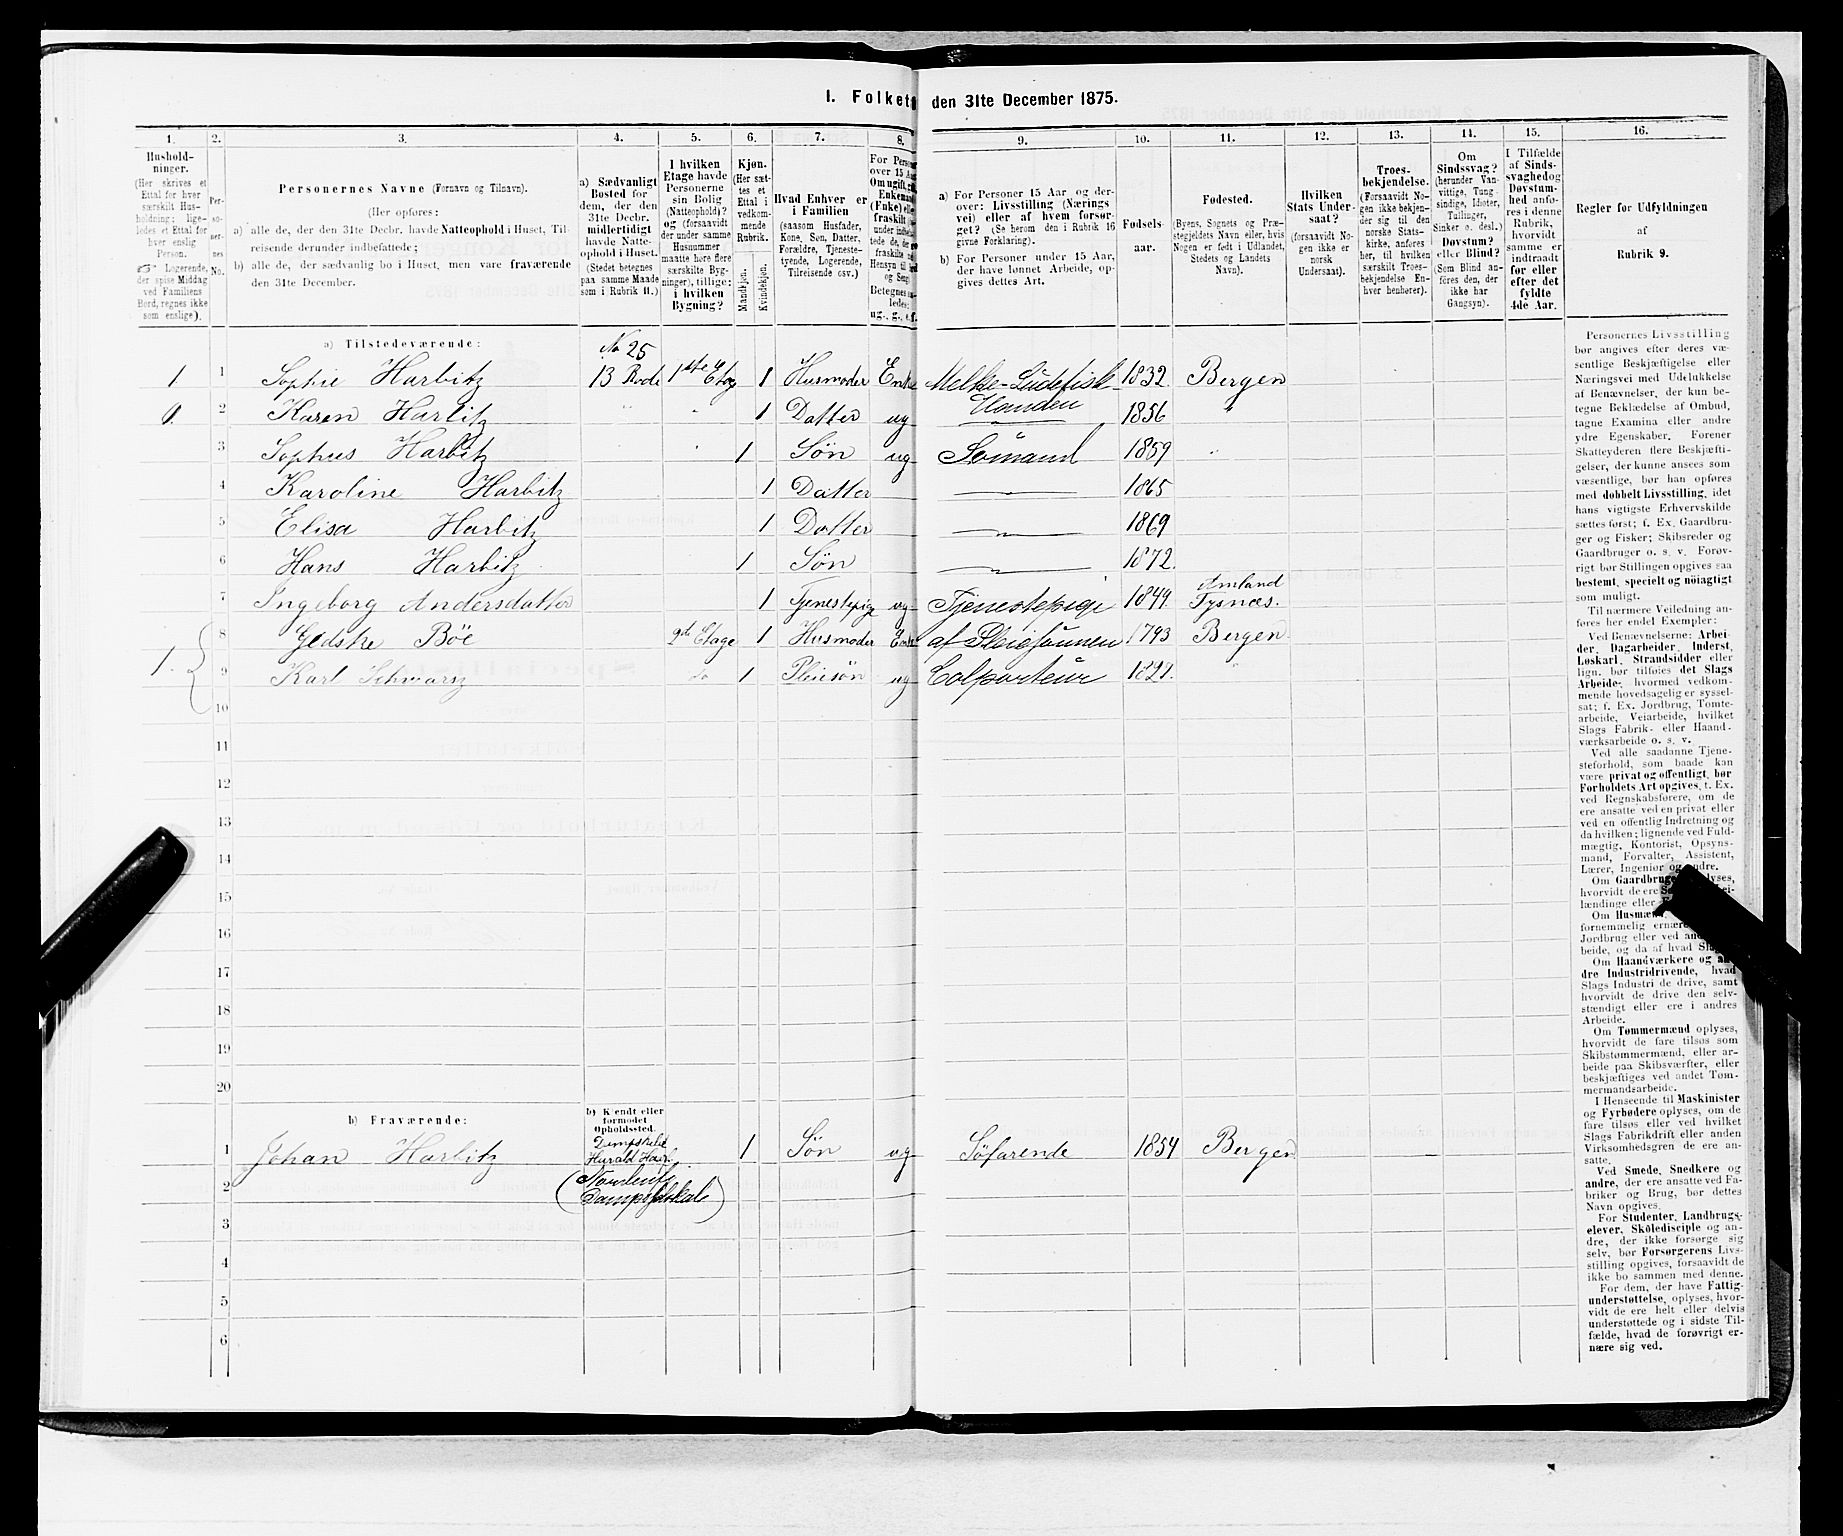 I. Folket den 31te December 1875.
1. 2. 3. 4. 5. 6. 7. 8. 9. 10. 11. 12. 13. 14. 15. 16.
Hushold-
ninger.
(Her skrives et
Ettal for hver
særskilt Hus-
holdning; lige-
ledes et Ettal for
hver enslig
Person.
Logerende,
der spise Middag
ved Familiens
Bord, regnes ikke
som enslige).
Per-
so-
ner-
nes
No.
Personernes Navne (Fornavn og Tilnavn).
(Her opføres:
a) alle de, der den 31te Decbr. havde Natteophold i Huset, Til-
reisende derunder indbefattede;
b) alle de, der sædvanlig bo i Huset, men vare fraværende
den 31te December.
a) Sædvanligt
Bosted for
dem, der den
31te Decbr.
midlertidigt
havde Natte-
ophold i Huset.
(Stedet betegnes
paa samme Maade
som i Rubrik 11.)
I hvilken
Etage havde
Personerne
sin Bolig
(Natteophold)?
og (forsaavidt
der under samme
Husnummer
maatte høre flere
særskilte Byg-
ninger), tillige:
i hvilken
Bygning?
Kjøn.
(Her sæt-
tes et
Ettal i
vedkom-
mende
Rubrik.
Mandkjøn.
Kvindekjøn.
Hvad Enhver er
i Familien
(saasom Husfader,
Kone, Søn, Datter,
Forældre, Tjeneste-
tyende, Logerende,
Tilreisende osv.)
For Perso
over 15 Aa
Om ugift, gi
Enkeman
(Enke) el
fraskilt
under indbe
tede de, der
fraskilte
Hensyn til
og Seng
Betegnes
ledes:
ug., g., e. f.
a) For Personer 15 Aar og der-
over: Livsstilling (Nærings-
vei) eller af hvem forsør-
get? (Se herom den i Rubrik 16
givne Forklaring).
b) For Personer under 15 Aar,
der have lønnet Arbeide, op-
gives dettes Art.
Fødsels-
aar.
Fødested.
(Byens, Sognets og Præ-
stegjeldets Navn eller, hvis
Nogen er født i Udlandet,
Stedets og Landets
Navn).
Hvilken
Stats Under-
saat?
(forsaavidt No-
gen ikke er
norsk
Undersaat).
Troes-
bekjendelse.
(Forsaavidt No-
gen ikke bekjen-
der sig til den
norske Stats-
kirke, anføres
her, til hvilken
særskilt Troes-
bekjendelse En-
hver henhører).
Om
Sindssvag?
(herunder Van-
vittige, Tung-
sindige, Idioter,
Tullinger,
Sinker o. desl.)
Døvstum?
eller Blind?
(Som Blind an-
føres den, der
ikke har
Gangsyn).
I Tilfælde
af Sinds-
svaghed og
Døvstum-
hed anfø-
res i denne
Rubrik,
hvorvidt
samme er
indtraadt
før eller
efter det
fyldte
4de Aar.
Regler for Udfyldningen
af
Rubrik 9.
a) Tilstedeværende:
No 25
1 1 Sophie Harbitz 13 Rode 1ste Etag 1 Husmoder Enke Melke-Ludefisk- 1832 Bergen
Handen
0. 2 Karen Harbitz " " 1 Datter ug 1856 "
3 Sophus Harbitz " 1 Søn ug Sömand 1859 "
4 Karoline Harbitz 1 Datter 1865
5 Elisa Harbitz 1 Datter 1869
6 Hans Harbitz 1 Søn 1872.
7 Ingeborg Andersdatter 1 Tjenestepige ug Tjenestepige 1849. Amland Tysnæs.
1. 8 Gjedske Böe 2de Etage 1 Husmoder Enke af Pleiesönnen 1793 Bergen
9 Karl Schwarz do 1 Pleiesön ug Colporteur 1821. "
10
11
12
13
14
15
16
17
18
19
20
b) Fraværende:
b) Kjendt eller
formodet
Opholdssted.
Dampskibe
Harald Haarf.
1 Johan Harbitz 1 Søn ug Söfarende 1854 Bergen
2
3
4
5
6
Personernes Livsstilling
bør angives efter deres væ-
sentlige Beskjæftigelse eller
Næringsvei med Udelukkelse
af Benævnelser, der kun be-
tegne Beklædelse af Ombud,
tagne Examina eller andre
ydre Egenskaber. Forener
Skatteyderen flere Beskjæfti-
gelser, der kunne ansees som
væsentlige, bør han opføres
med dobbelt Livsstilling, idet
hans vigtigste Erhvervskilde
sættes først; f. Ex. Gaardbru-
ger og Fisker; Skibsreder og
Gaardbruger o. s. v. Forøv-
rigt bør Stillingen opgives saa
bestemt, specielt og nöiagtigt
som muligt.
Til nærmere Veiledning an-
føres her endel Exempler:
Ved Benævnelserne: Arbei-
der, Dagarbeider, Inderst,
Løskarl, Strandsidder eller
lign. bør tilføies det Slags
Arbeide, hvormed vedkom-
mende hovedsagelig er syssel-
sat; f. Ex. Jordbrug, Tomte-
arbeide, Veiarbeide, hvilket
Slags Fabrik- eller Haand-
værksarbeide o. s. v.
Ved alle saadanne Tjene-
steforhold, som baade kan
være privat og offentligt, bør
Forholdets Art opgives, f. Ex.
ved Regnskabsførere, om de
ere ansatte ved en privat eller
ved en offentlig Indretning og
da hvilken; lignende ved Fuld-
mægtig, Kontorist, Opsyns-
mand, Forvalter, Assistent,
Lærer, Ingeniør og andre.
Om Gaardbruge
hvorvidt de ere
lændinge eller
Om Husmæn
fornemmelig ernære
Jordbrug eller ved
beide, og da af hvad
Om Haandværkere og an-
dre Industridrivende, hvad
Slags Industri de drive, samt
hvorvidt de drive den selv-
stændigt eller ere i andres
Arbeide.
Om Tømmermænd oplyses,
hvorvidt de fare tilsøs som
Skibstømmermænd, eller ar-
beide paa Skibsværfter, eller
beskjæftiges ved andet Tøm-
mermandsarbeide.
I Henseende til Maskinister
og Fyrbødere oplyses, om de
fare tilsøs eller ved hvilket
Slags Fabrikdrift eller anden
Virksomhedsgren de ere an-
satte.
Ved Smede, Snedkere og
andre, der ere ansatte ved Fa-
briker og Brug, bør dettes
Navn opgives.
For Studenter, Landbrugs-
elever, Skoledisciple og an-
dre, der ikke forsørge sig
selv, bør Forsørgerens Livs-
stilling opgives, forsaavidt de
ikke bo sammen med denne.
For dem, der have Fattig-
understøttelse, oplyses, hvor-
vidt de ere helt eller delvis
understøttede og i sidste Til-
fælde, hvad de forøvrigt er-
nære sig ved.